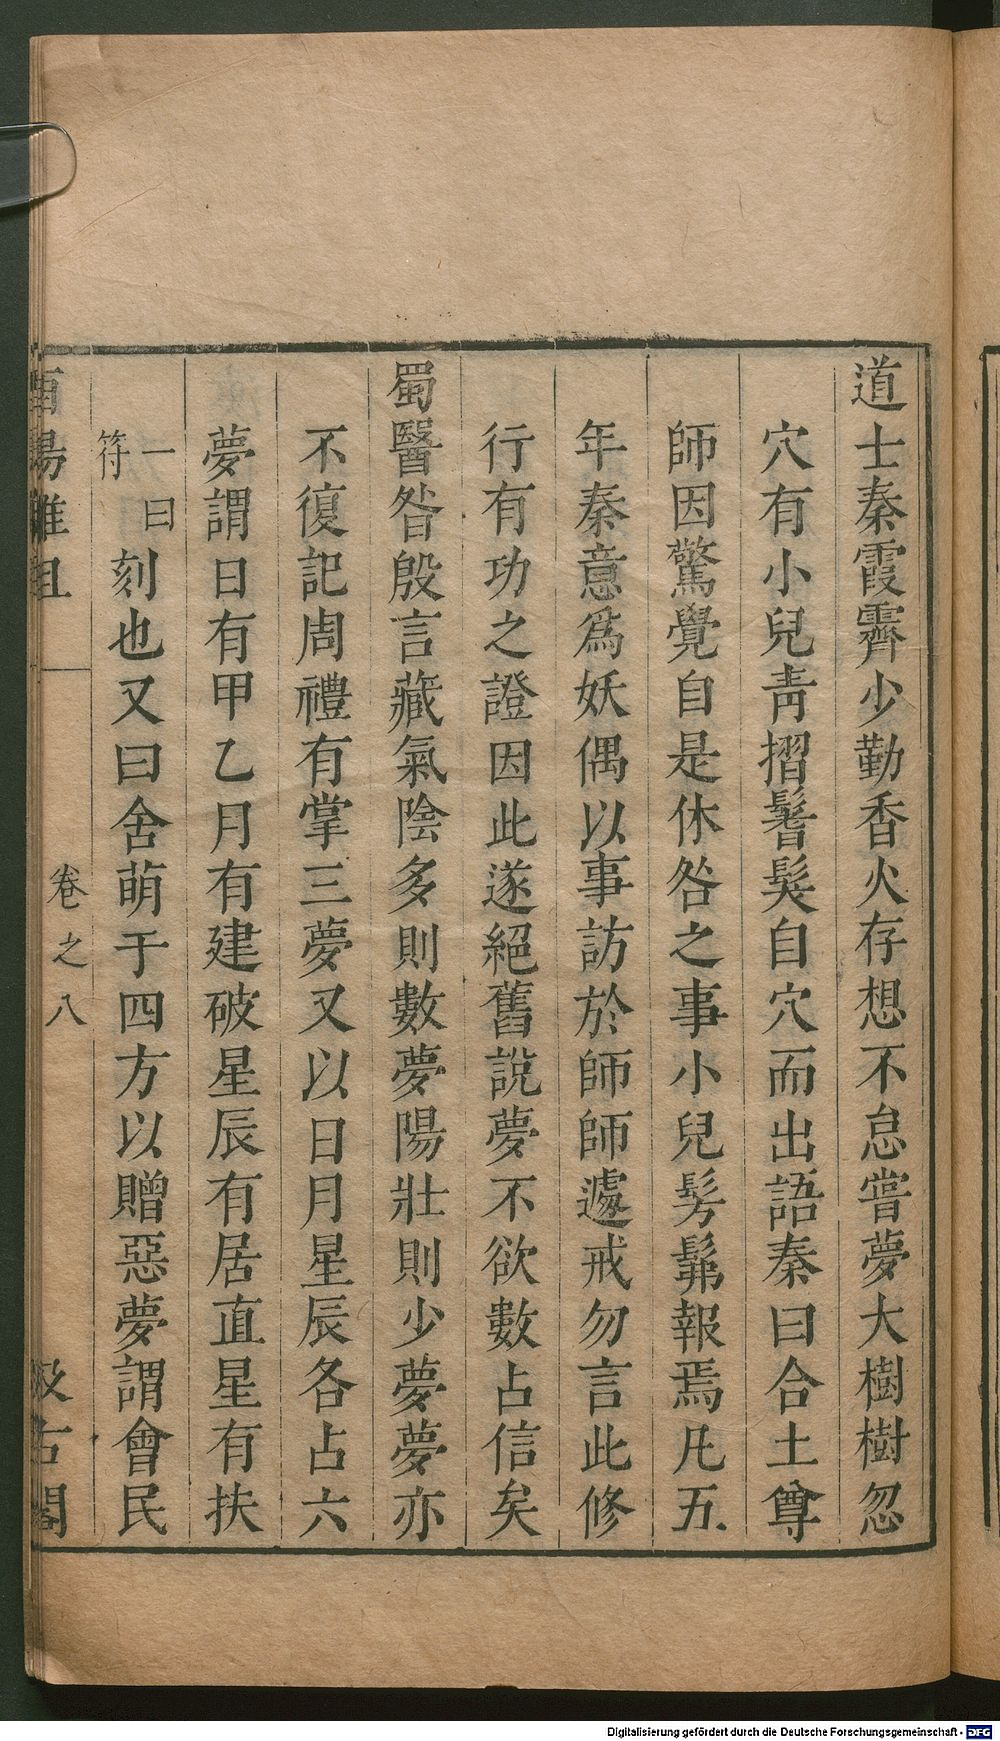 道士秦霞霽少勤香火存想不怠嘗夢大樹樹忽
穴有小兒青摺鬐髮自穴而出語秦曰合土尊
師因驚覺自是休咎之事小兒髣髴報焉凡五
年秦意爲妖偶以事訪於師師遽戒勿言此修
行有功之證因此遂絕舊說夢不欲數占信矣
蜀醫昝殷言藏氣陰多則數夢陽壯則少夢夢亦
不復記周禮有掌三夢又以日月星辰各占六
夢謂日有甲乙月有建破星辰有居直星有扶
一曰符刻也又曰舍萌于四方以贈惡夢謂會民
酉陽雜俎
卷之八
汲古閣
Digitalisierung gefördert durch die Deutsche Forschungsgemeinschaft - DFG